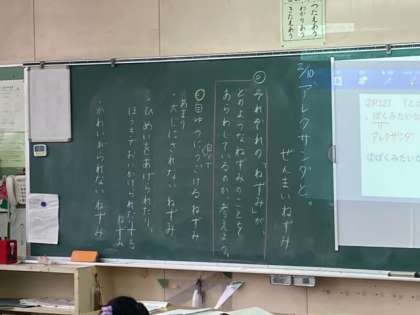 2/10 アレクサンダと
ぜんまいねずみ
それぞれの「ねずみ」が
どのようなねずみのことを
あらわしているのか考えよう。
自ゆうにうごけるねずみ
あまり
・大じにされないねずみ
・ひめいをあげられたり、
ほうきでおいかけられたりする
ねずみ
・かわいがられないねずみ
②P127
ぼくみたいな
アレクサンダ
ぼくみたい
つたえあう